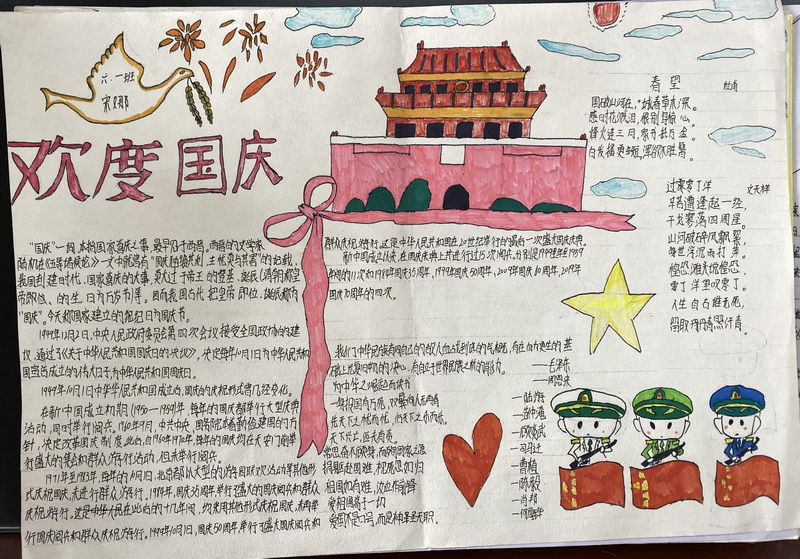 六.一班
欢度国庆
"国庆"一词,本指国家喜庆之事,最早见于西晋。西晋的文学家
陆机在《五等诸侯论》一文中就曾有"国庆独飨其利,主忧莫与其害"的记载,
我国封建时代、国家喜庆的大事,莫大过于帝王的登基、诞辰(清朝称皇
帝即位、的生日为万岁节)等。因而我国古代把皇帝即位、诞辰称为
"国庆"。今天称国家建立的纪念日为国庆节。
1949年12月2日,中央人民政府委员会第四次会议接受全国政协的建
议,通过了《关于中华人民共和国国庆日的决议》,决定每年10月1日为中华人民共和
国宣告成立的伟大日子,为中华人民共和国国庆日。
1949年10月1日中华人民共和国成立后,国庆的庆祝形式曾几经变化。
在新中国成立初期(1950—1959)年,每年的国庆都举行大型庆典
活动,同时举行阅兵。1960年9月,中共中央、国务院本着勤俭建国的方
针,决定改革国庆制度。此后,自1960年至1970年,每年的国庆均在天安门前举
行盛大的集会和群众游行活动,但未举行阅兵。
1971年至1983年,每年的10月1日,北京都以大型的游园联欢活动等其他形
式庆祝国庆,未进行群众游行。1984年,国庆35周年,举行了盛大的国庆阅兵和群众
庆祝游行。这是中华人民在此后的十几年间,均采用其他形式庆祝国庆,未再举
行国庆阅兵和群众庆祝游行。1999年10月1日,国庆50周年,举行了盛大国庆阅兵和
群众庆祝游行。这是中华人民共和国在20世纪举行的最后一次盛大国庆庆典。
新中国成立以来,在国庆庆典上共进行过15次阅兵。分别是1949年至1959
年间的11次和1984年国庆35周年、1999年国庆50周年、2009年国庆60周年、2019年
国庆70周年的四次。
我们中华民族有同自己的敌人血战到底的气概,有在自力更生的基
础上光复旧物的决心,有自立于世界民族之林的能力。 —毛泽东
为中华之崛起而读书 —周恩来
—身报国有万死,双鬓向人无再青 —陆游
先天下之忧而忧,后天下之乐而乐。
天下兴亡,匹夫有责。
常思奋不顾身,而殉国家之急 —司马迁
捐躯赴国难,视死忽如归 —曹植
祖国如有难,汝应作前锋 —陈毅
爱祖国高于一切 —肖邦
春望 杜甫
国破山河在,城春草木深。
感时花溅泪,恨别鸟惊心。
烽火连三月,家书抵万金。
白发搔更短,浑欲不胜簪。
过零丁洋 文天祥
辛苦遭逢起一经,
干戈寥落四周星。
山河破碎风飘絮,
身世浮沉雨打萍。
惶恐滩头说惶恐,
零丁洋里叹零丁。
人生自古谁无死,
留取丹心照汗青。